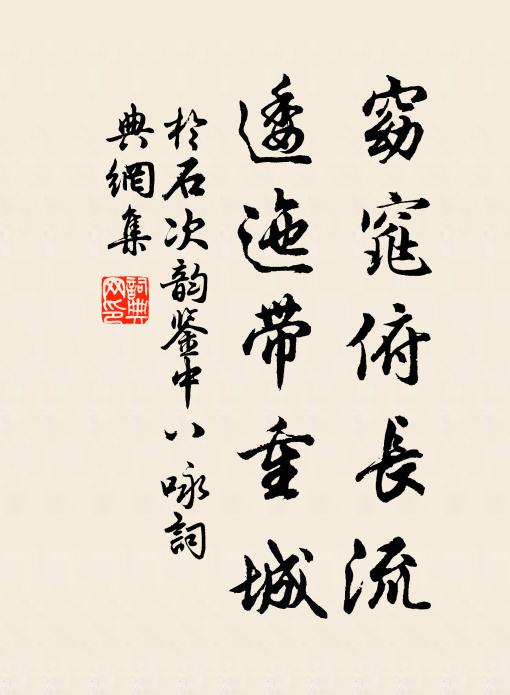 窈窕俯長流
逶迤带重城
於石次韵鉴中八咏詞
典網集
詞典网印